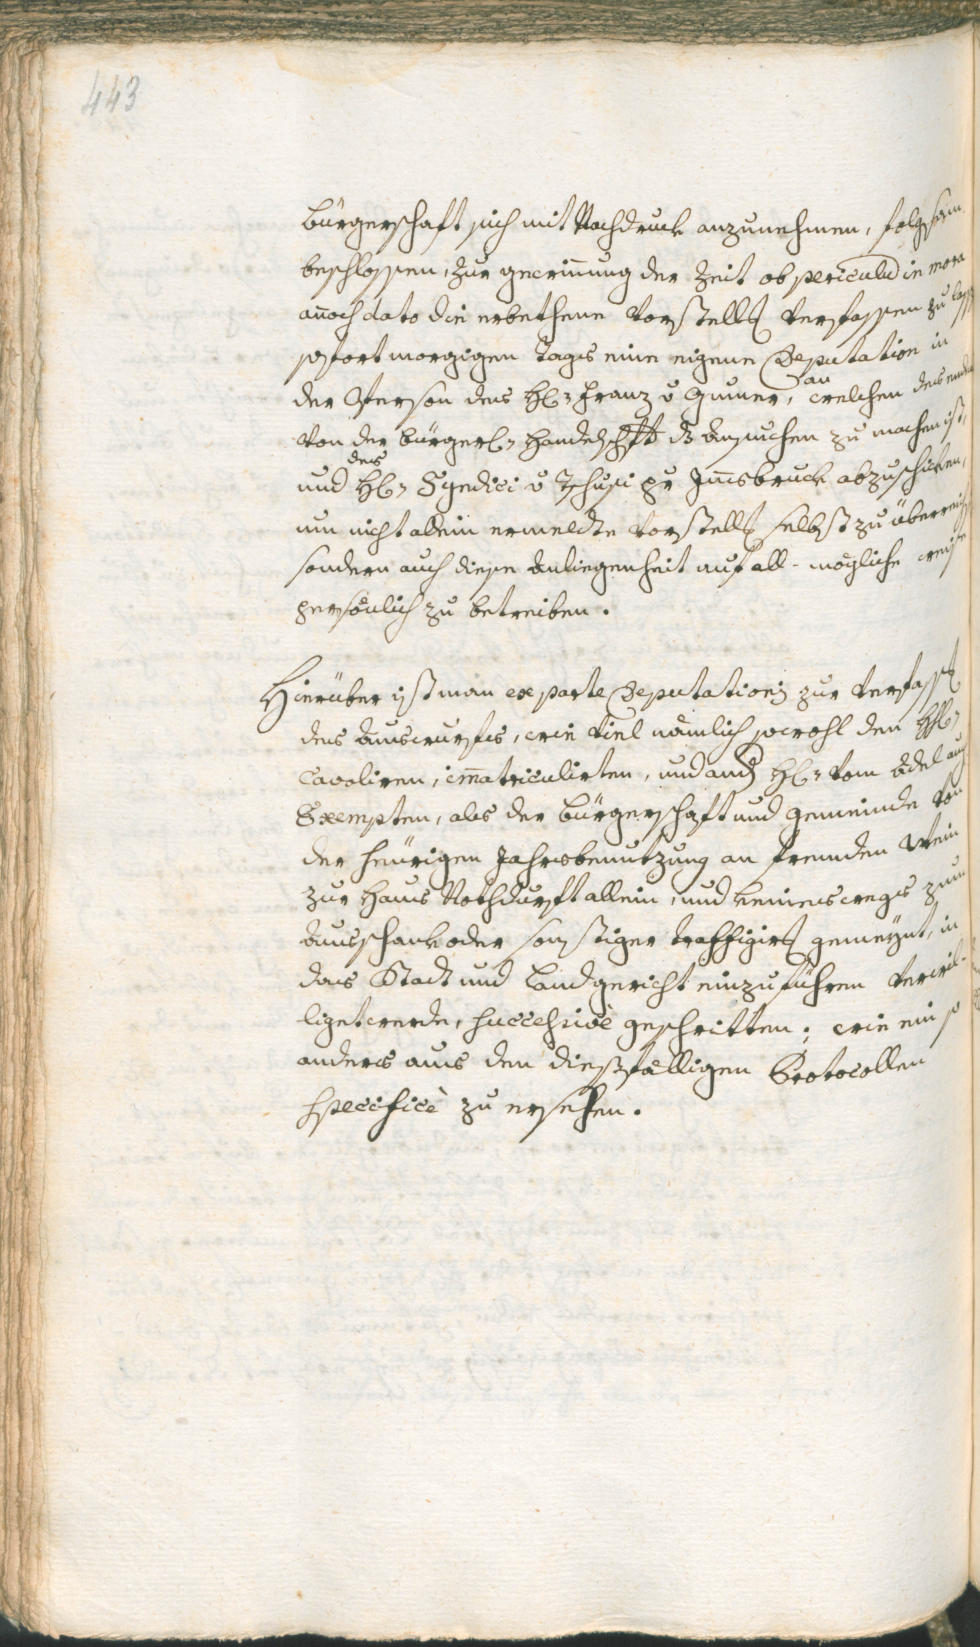 443
bürgerschaft sich mit Nachdruck anzunehmen, folgsam
beschlossen, zur gewinnung der Zeit ob periculum in mora
annoch dato die erbethene Vorstellg Verfassen zu lassen
sofort morgigen Tags eine eigene Deputation in
der Person des H: Franz v Gumer, an welchen des ends
von der bürgerl: Handelschafft dz ansuchen zu machen ist,
und des H: Syndici v Tschusi pr Innsbruck abzuschicken,
um nicht allein ermeldte Vorstellg selbst zu überreichen
sondern auch diese anliegenheit auf all-mögliche weise
persönlich zu betreiben.
Hierüber ist man ex parte Deputationis zur Verfassg
des auswurfes, wie viel nämlich sowohl den HH:
Cavaliren, immatriculirten, und and H: vom adel auch
Exempten, als der bürgerschaft und gemeinde von
der heürigen Jahrsbenutzung an fremden Wein
zur Haus Nothdurft allein, und keineswegs zum
ausschank oder sonstiger traffigirg gemeynt, in
das Stadt und Landgericht einzuführen verwil-
liget werde, successivè geschritten; wie ein so
anders aus den dießfälligen Protocollen
specificè zu ersehen.